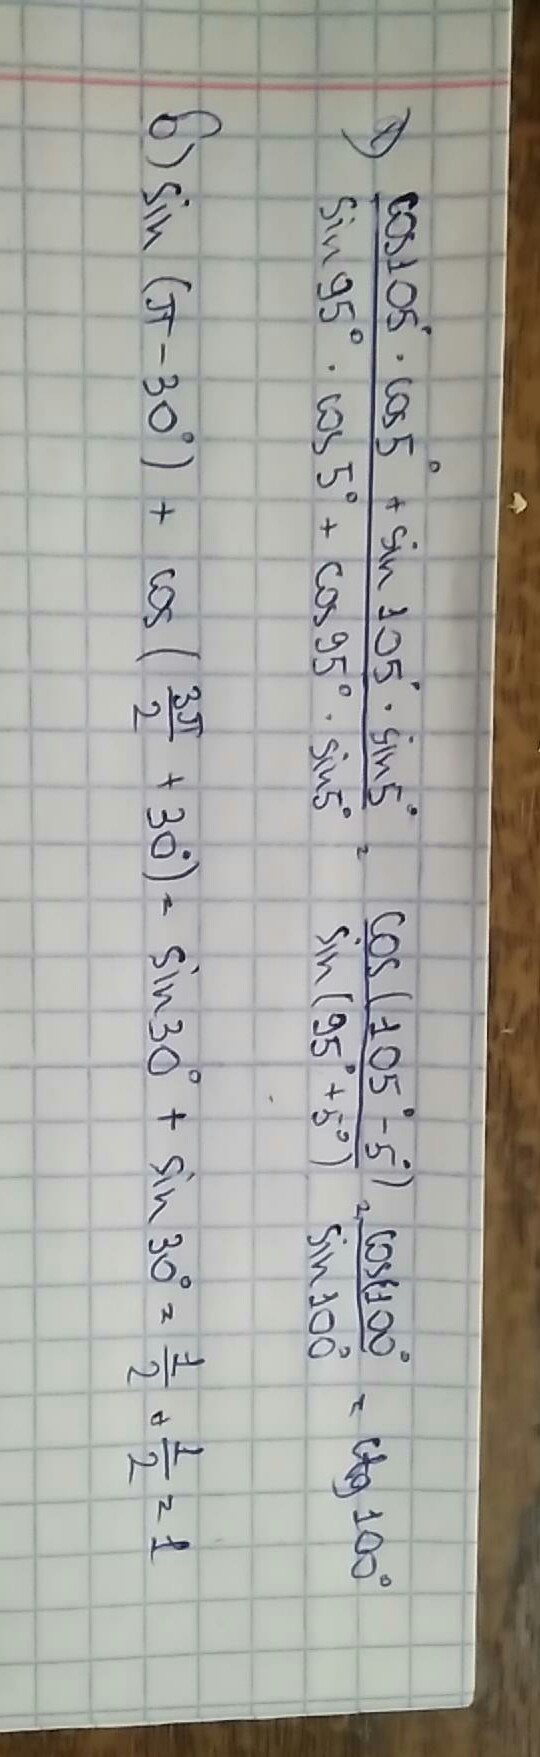 а) cos105° · cos5° + sin 105° · sin5° / sin95° · cos5° + cos95° · sin5° = cos(105° - 5°) / sin(95° + 5°) = cos100° / sin100° = ctg 100°
б) sin (π - 30°) + cos (3π/2 + 30°) = sin30° + sin30° = 1/2 + 1/2 = 1